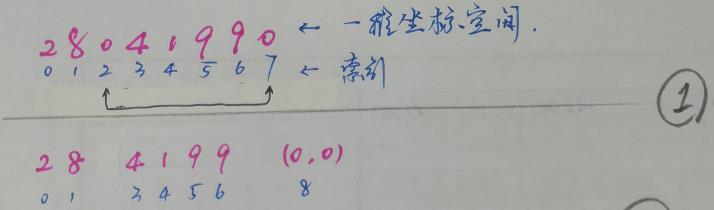 28041990 ← 一维坐标空间.
0 1 2 3 4 5 6 7 ← 索引
1
28 4199 (0,0)
0 1 3 4 5 6 8